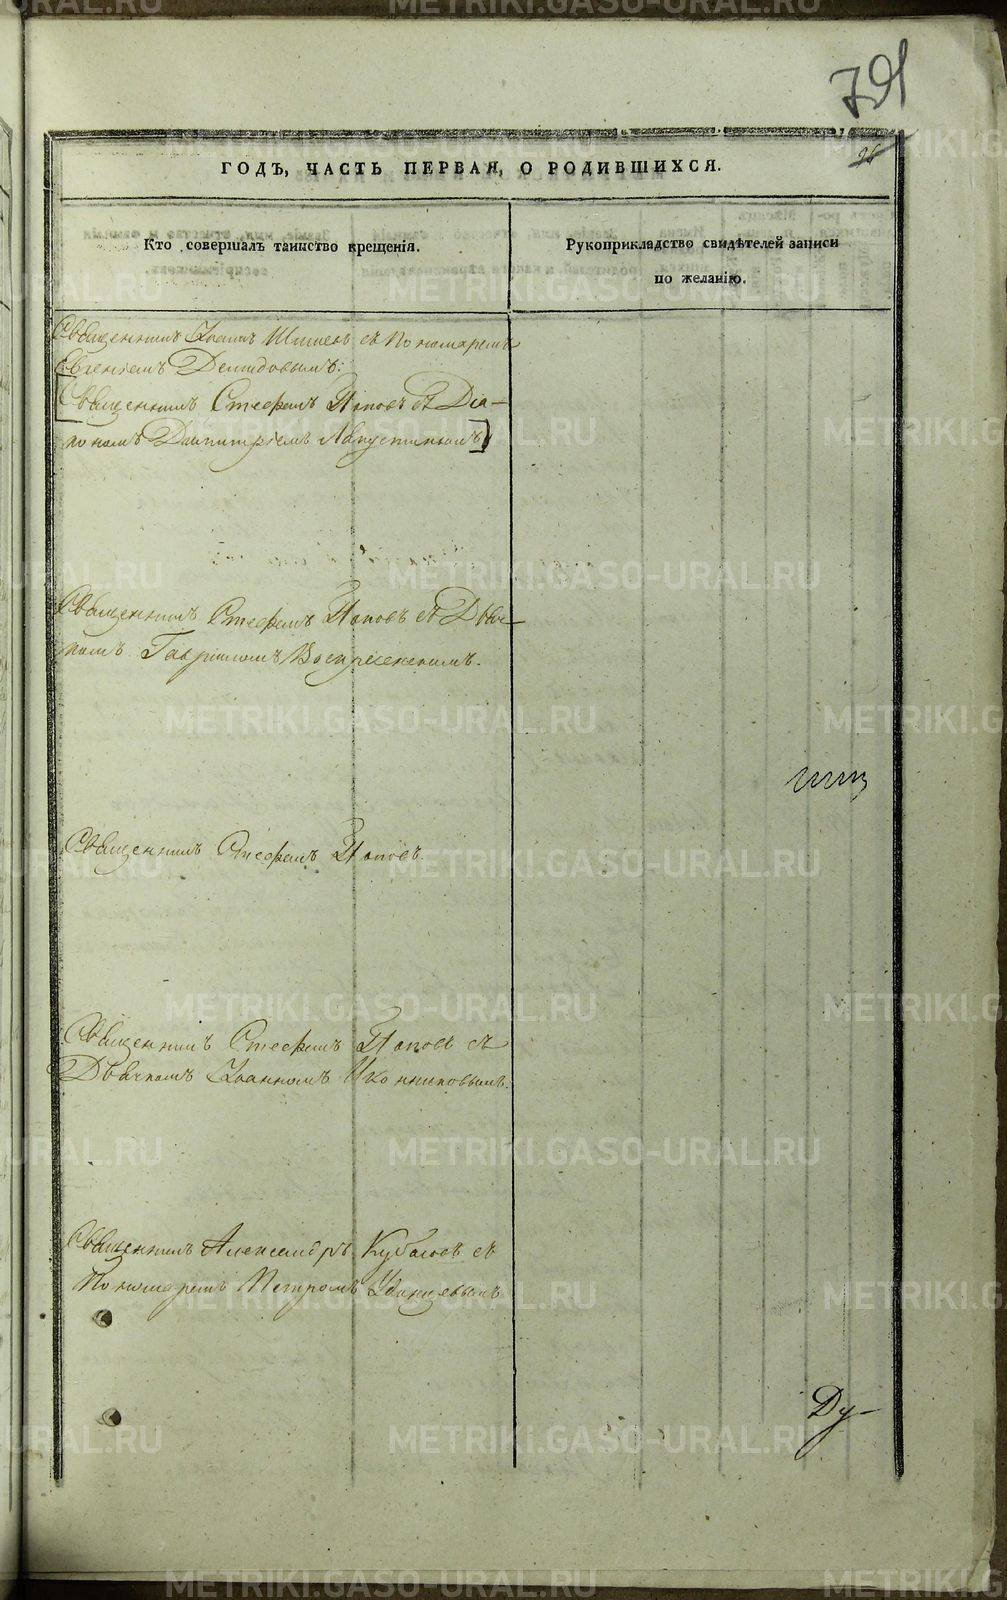 791
96
ГОДЪ, ЧАСТЬ ПЕРВАЯ, О РОДИВШИХСЯ.
Кто совершалъ таинство крещенія.
Рукоприкладство свидѣтелей записи
по желанію.
Священникъ Іоаннъ съ Пономаремъ
Евгеніемъ Демидовымъ.
Священникъ Стефанъ Поповъ съ Діа-
кономъ Димитріемъ Августиновымъ
Священникъ Стефанъ Поповъ съ Дьяч-
комъ Гавріиломъ Воскресенскимъ.
Священникъ Стефанъ Поповъ.
Священникъ Стефанъ Поповъ съ
Дьячкомъ Іоанномъ Иконниковымъ.
Священникъ Александръ съ
Пономаремъ Петромъ Удинцевымъ
Ду-
METRIKI.GASO-URAL.RU